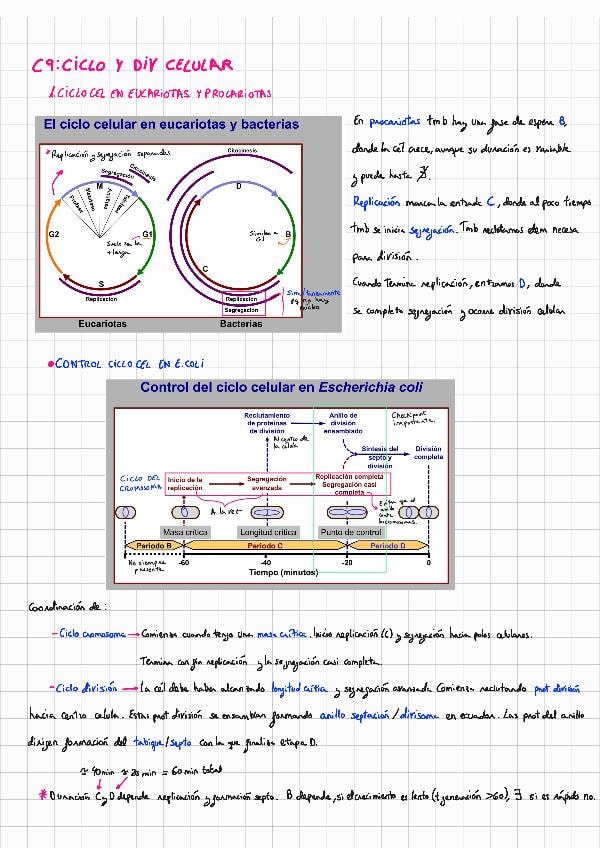 C9: CICLO Y DIV CELULAR
1. CICLO CEL EN EUCARIOTAS Y PROCARIOTAS
El ciclo celular en eucariotas y bacterias
* Replicación y segregación separadas
Citocinesis
Segregación
M
Profase
Metafase
Anafase
Telofase
G2
G1
Suele ser la
+ larga
S
Replicación
Eucariotas
Citocinesis
D
Similar a
G1
B
C
Replicación
Segregación
Simultáneamente
pq no hay
núcleo
Bacterias
En procariotas tmb hay una fase de espera B,
donde la cel crece, aunque su duración es variable
y puede hasta ∄.
Replicación marca la entrada C, donde al poco tiempo
tmb se inicia segregación. Tmb necesa
para división.
Cuando termine replicación, entramos D, donde
se completa segregación y ocurre división celular
• CONTROL CICLO CEL EN E.COLI
Control del ciclo celular en Escherichia coli
Reclutamiento
de proteínas
de división
Al centro de
la célula
Anillo de
división
ensamblado
Checkpoint
importante
Síntesis del
septo y
división
División
completa
CICLO DEL
CROMOSOMA
Inicio de la
replicación
Segregación
avanzada
Replicación completa
Segregación casi
completa
A la vez
Evita que el
anillo
corte
cromosomas
Masa crítica
Longitud crítica
Punto de control
Periodo B
Periodo C
Periodo D
No siempre
presente
-60
-40
-20
0
Tiempo (minutos)
Coordinación de:
- Ciclo cromosoma → Comienza cuando tengo una masa crítica. Inicio replicación (C) y segregación hacia polos celulares.
Termina con fin replicación y la segregación casi completa.
- Ciclo división → la cel debe haber alcanzado longitud crítica y segregación avanzada. Comienza reclutando prot división
hacia centro celula. Estas prot división se ensamblan formando anillo septación / divisoma en ecuador. Las prot del anillo
dirigen formación del tabique/septo con la que finaliza etapa D.
≃ 40 min ≃ 20 min = 60 min total
* Duración C y D depende replicación y formación septo. B depende, si el crecimiento es lento (t generación >60), ∃ si es rápido no.